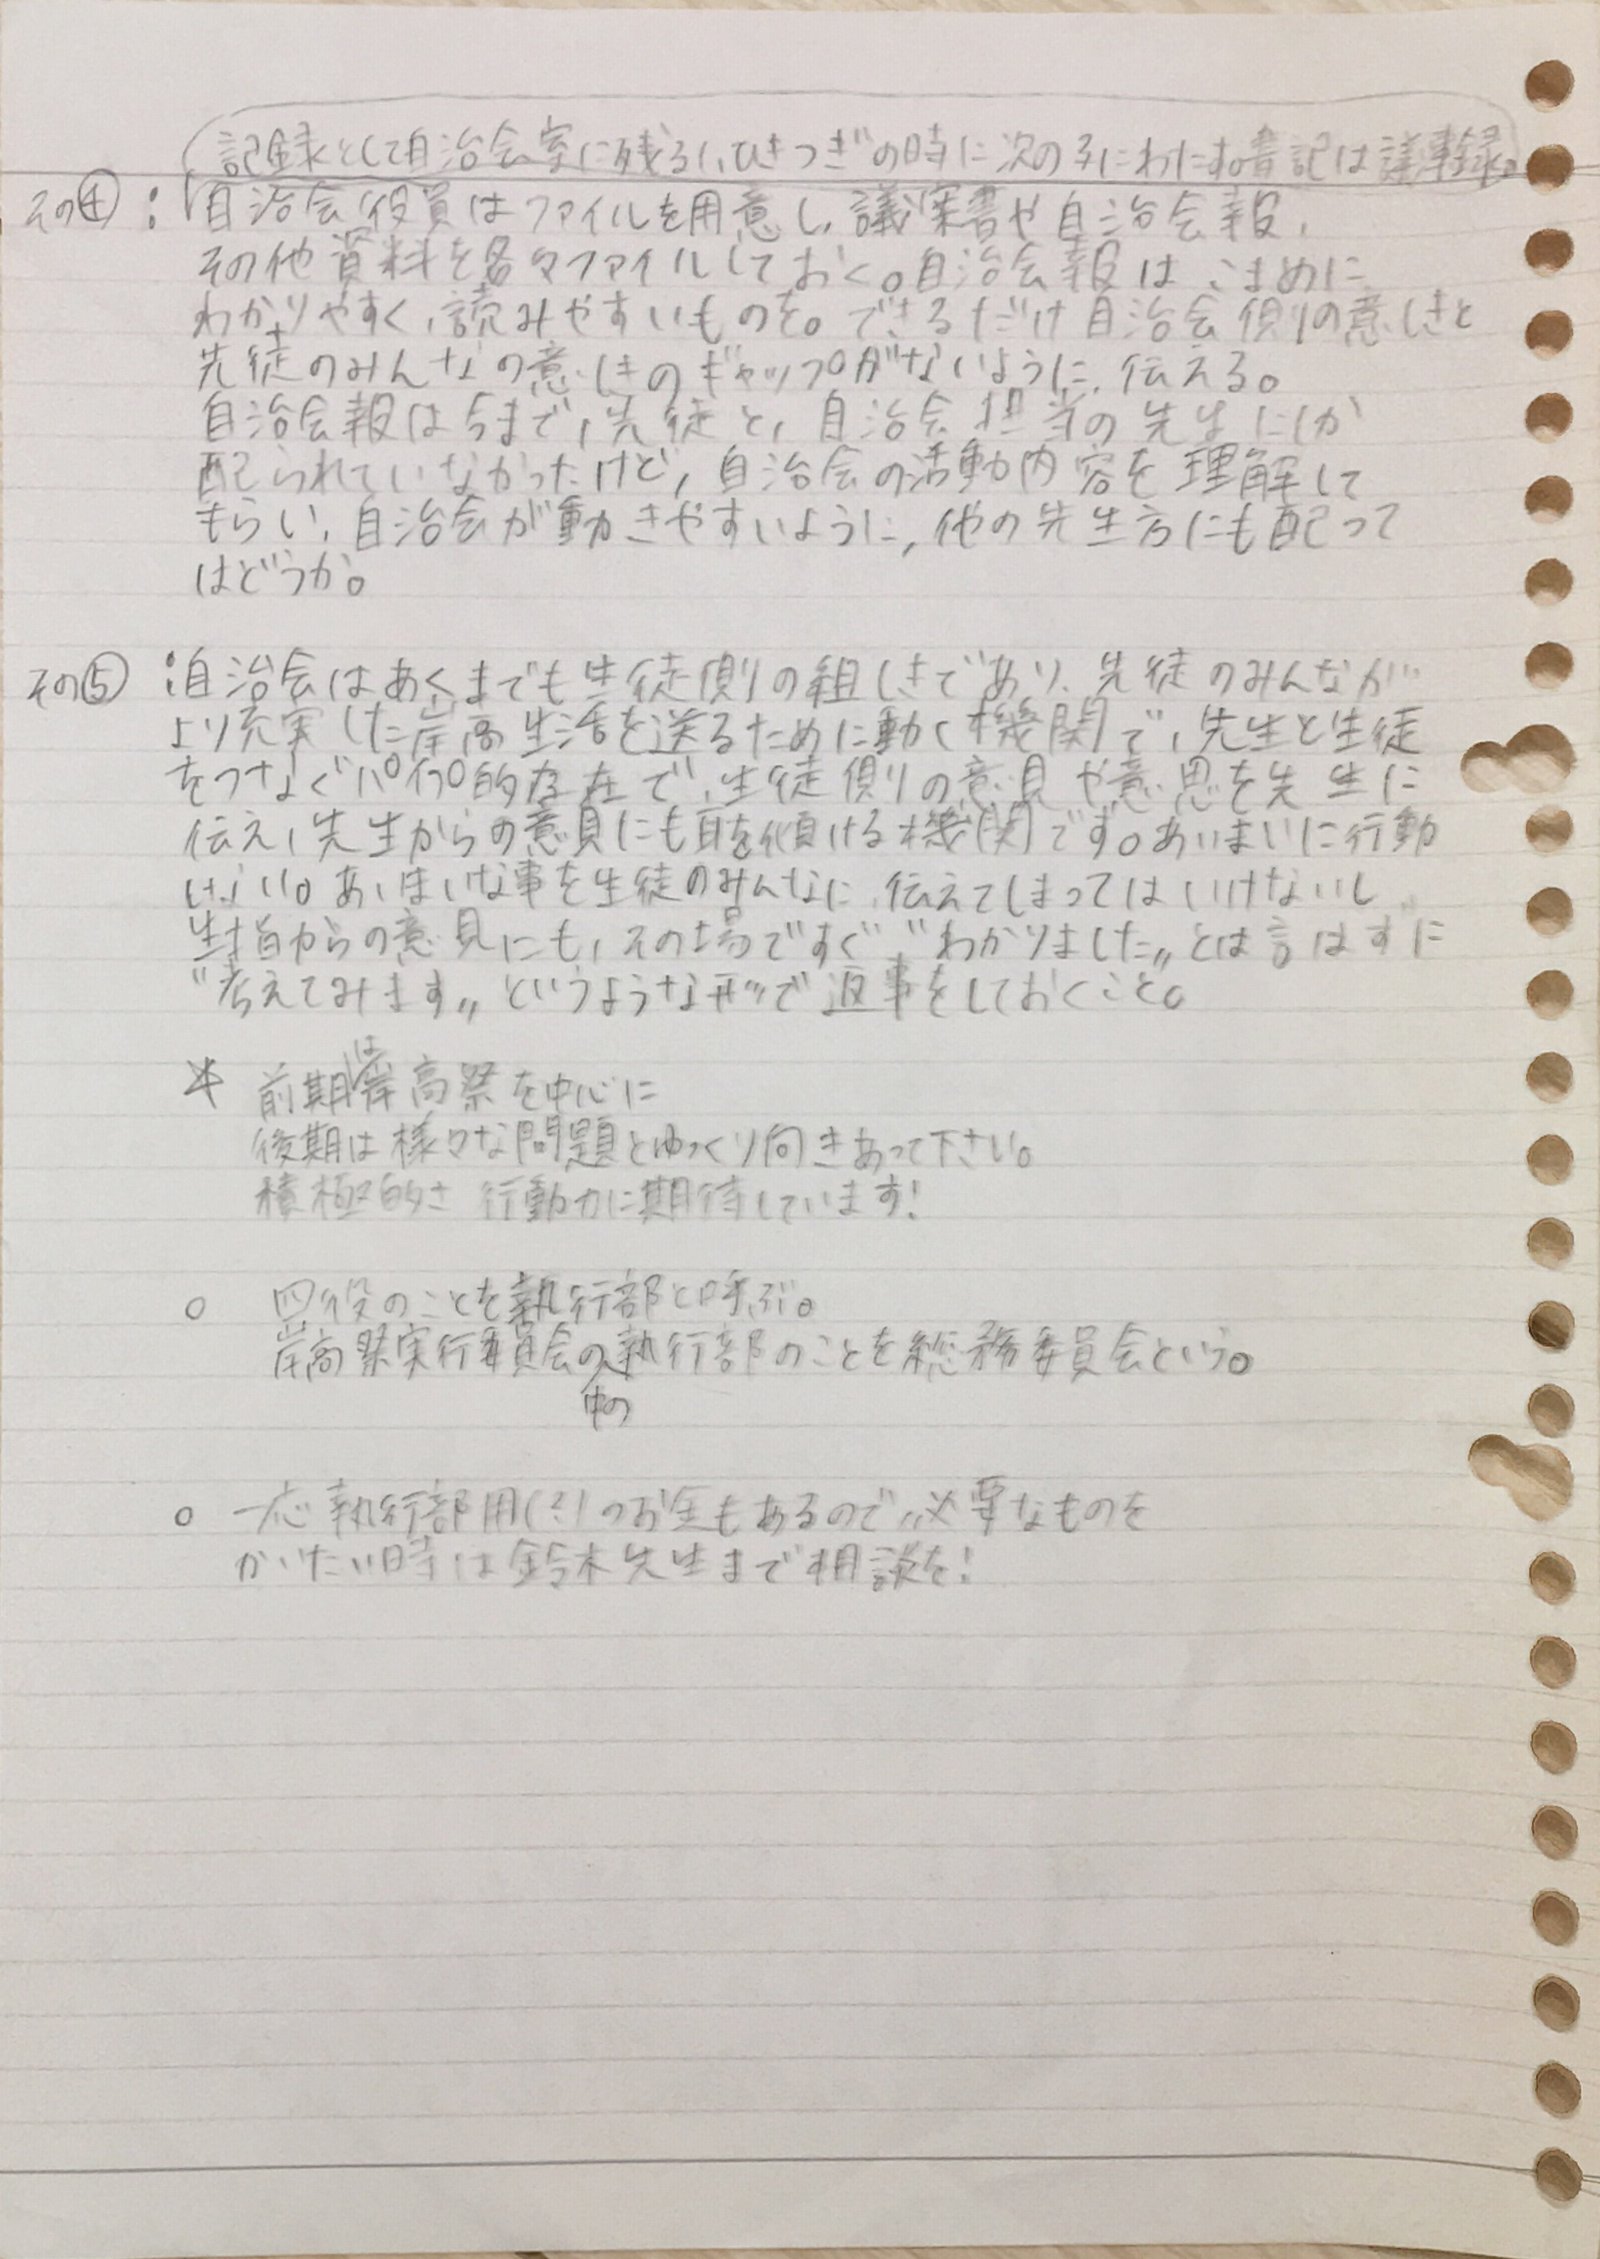 記録として自治会室に残るし、ひきつぎの時に次の子にわたす。書記は議事録。
その④：自治会役員はファイルを用意し、議案書や自治会報、
その他資料を各々ファイルしておく。自治会報はこまめに
わかりやすく、読みやすいものを。できるだけ自治会側の意しきと
先徒のみんなの意しきのギャップがないように、伝える。
自治会報は今まで、先徒と、自治会担当の先生にしか
配られていなかったけど、自治会の活動内容を理解して
もらい、自治会が動きやすいように、他の先生方にも配って
はどうか。
その⑤：自治会はあくまでも生徒側の組しきであり、先徒のみんなが
より充実した岸高生活を送るために動く機関で、先生と生徒
をつなぐパイプ的存在で、生徒側の意見や意思を先生に
伝え、先生からの意見にも耳を傾ける機関です。あいまいに行動
しない。あいまいな事を生徒のみんなに、伝えてしまってはいけないし
生指からの意見にも、その場ですぐ〝わかりました〟とは言はずに
〝考えてみます〟というような形で返事をしておくこと。
* 前期は岸高祭を中心に
後期は様々な問題とゆっくり向きあって下さい。
積極的さ 行動力に期待しています!
○ 四役のことを執行部と呼ぶ。
岸高祭実行委員会の中の執行部のことを総務委員会という。
○ 一応執行部用のお金もあるので、必要なものを
かいたい時は鈴木先生まで相談を!